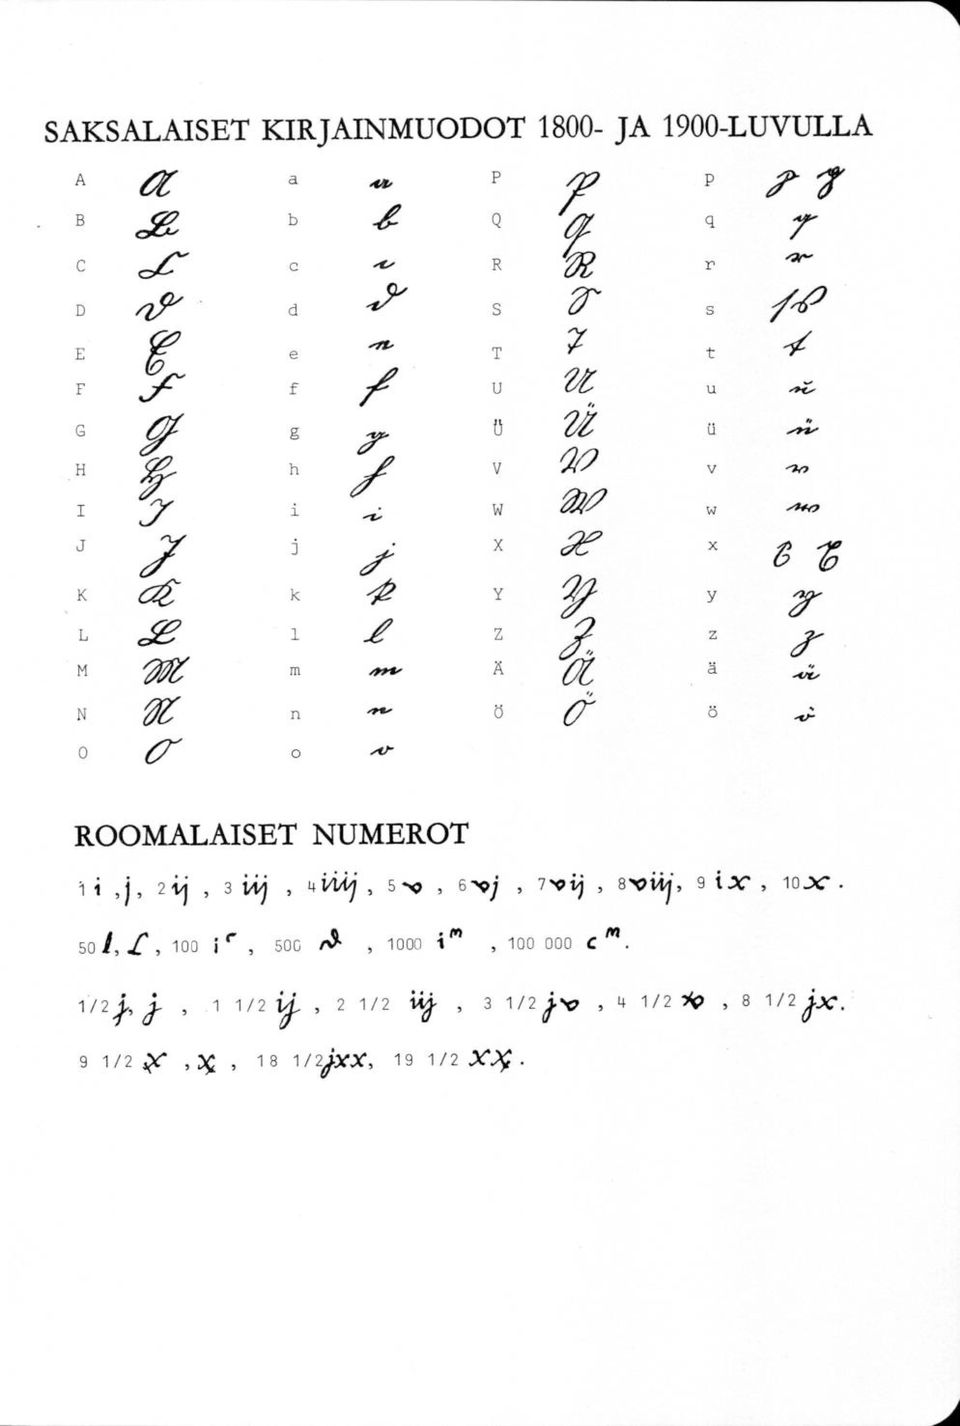 SAKSALAISET KIRJAINMUODOT 1800- JA 1900-LUVULLA
A a a a P P p p p
B B b b Q Q q q
C C c c R R r r
D D d d S S s s s
E E e e T T t t
F F f f U U u u
G G g g Ü Ü ü ü
H H h h V V v v
I I i i W W w w
J J j j X X x x x
K K k k Y Y y y
L L l l Z Z z z
M M m m Ä Ä ä ä
N N n n Ö Ö ö ö
O O o o
ROOMALAISET NUMEROT
1 i ,j, 2 ij , 3 iij , 4 iiij , 5 v , 6 vj , 7 vij , 8 viij, 9 ix , 10 x .
50 l, L , 100 i c , 500 d , 1000 i m , 100 000 c m .
1/2 j, j , 1 1/2 ij , 2 1/2 iij , 3 1/2 jv , 4 1/2 v , 8 1/2 jx.
9 1/2 x , x , 18 1/2 jxx, 19 1/2 xx .